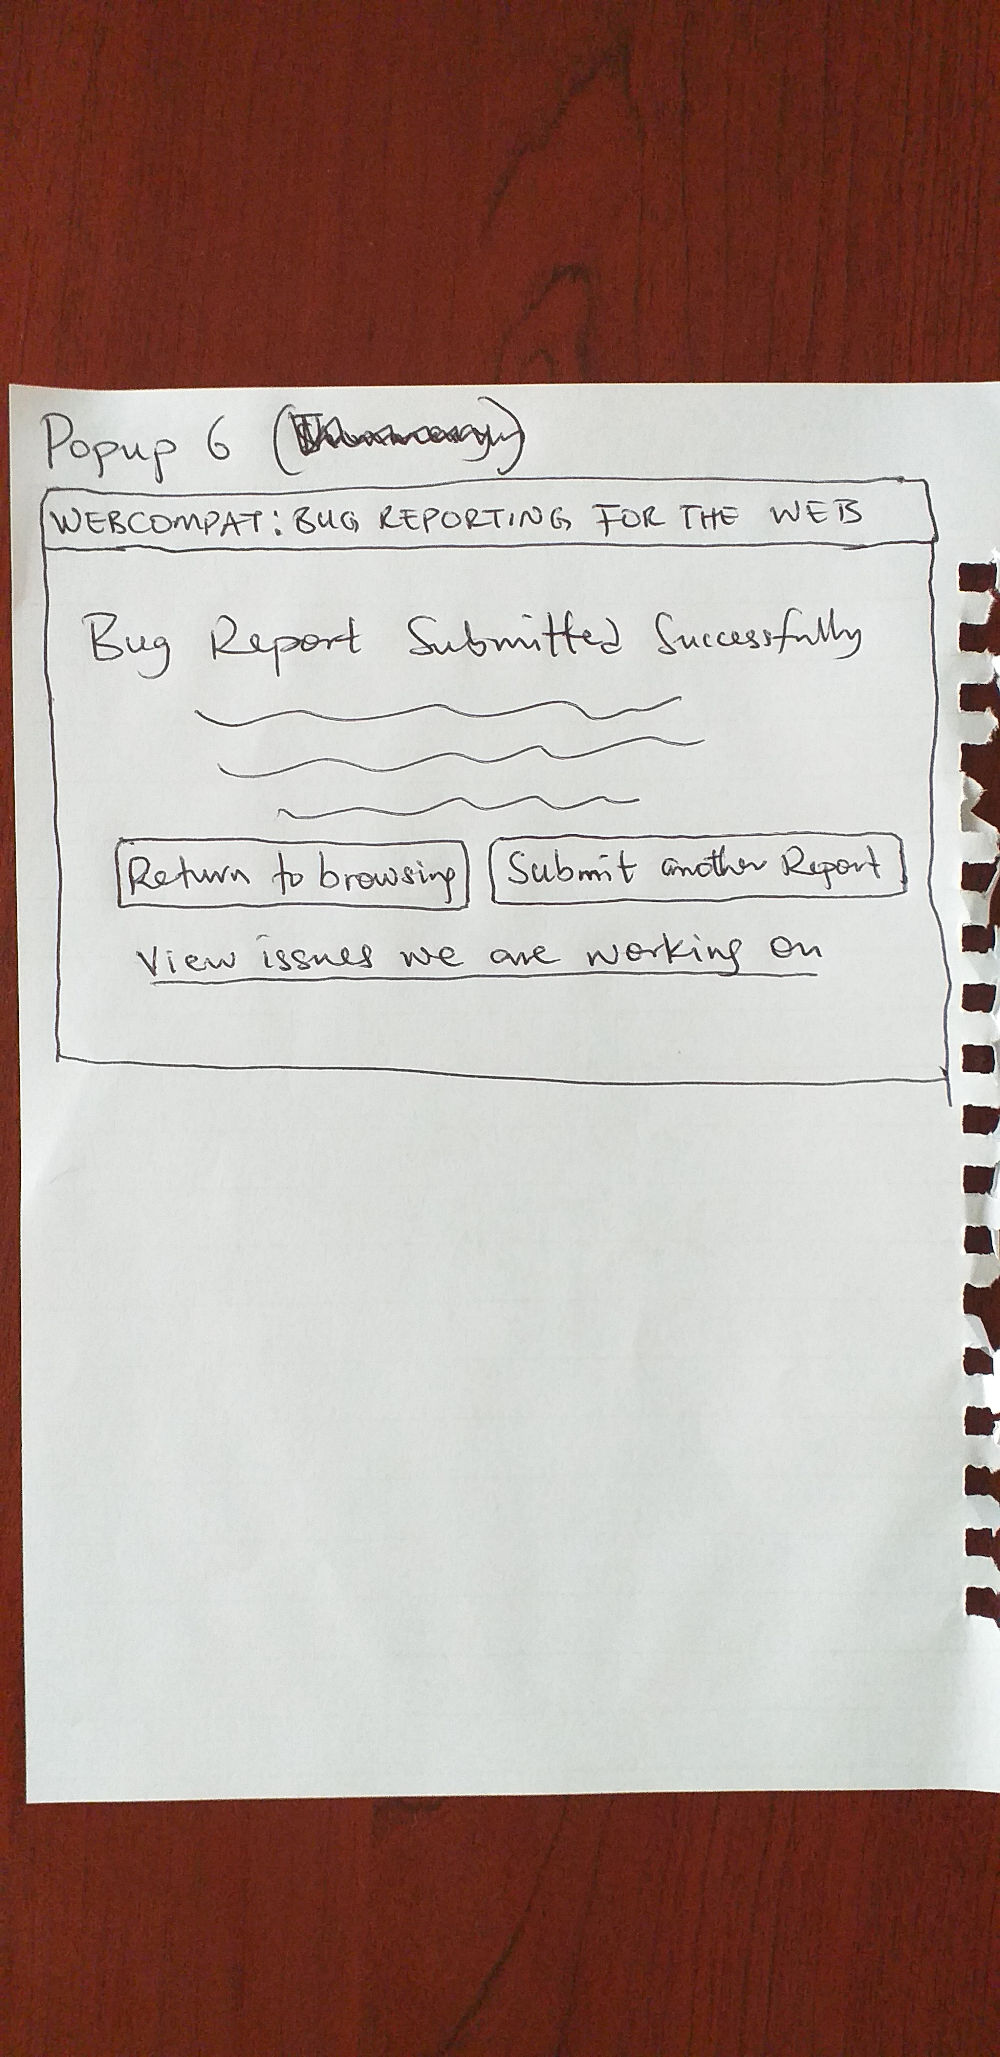 Popup 6 (
WEBCOMPAT: BUG REPORTING FOR THE WEB
Bug Report Submitted Successfully
Return to browsing
Submit another Report
View issues we are working on